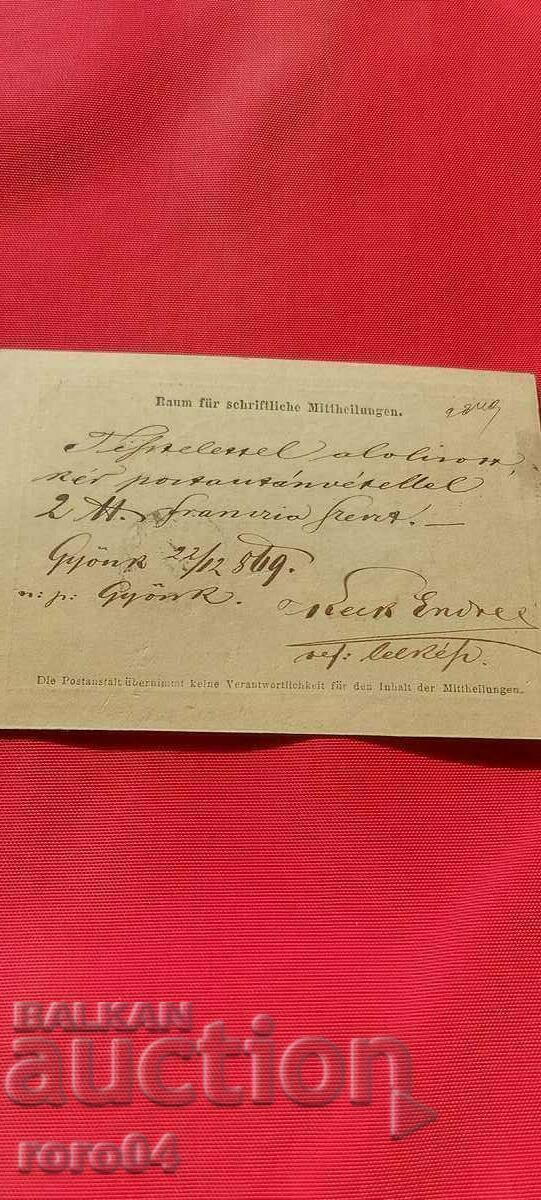 Raum für schriftliche Mittheilungen.
Tisztelettel alolirott,
kér postautánvétellel
2 tt. franczia szert. —
Gyönk 22/12 869.
u: p: Gyönk.
Keck Endre
ref: lelkész.
Die Postanstalt übernimmt keine Verantwortlichkeit für den Inhalt der Mittheilungen.
BALKAN
auction
roro04